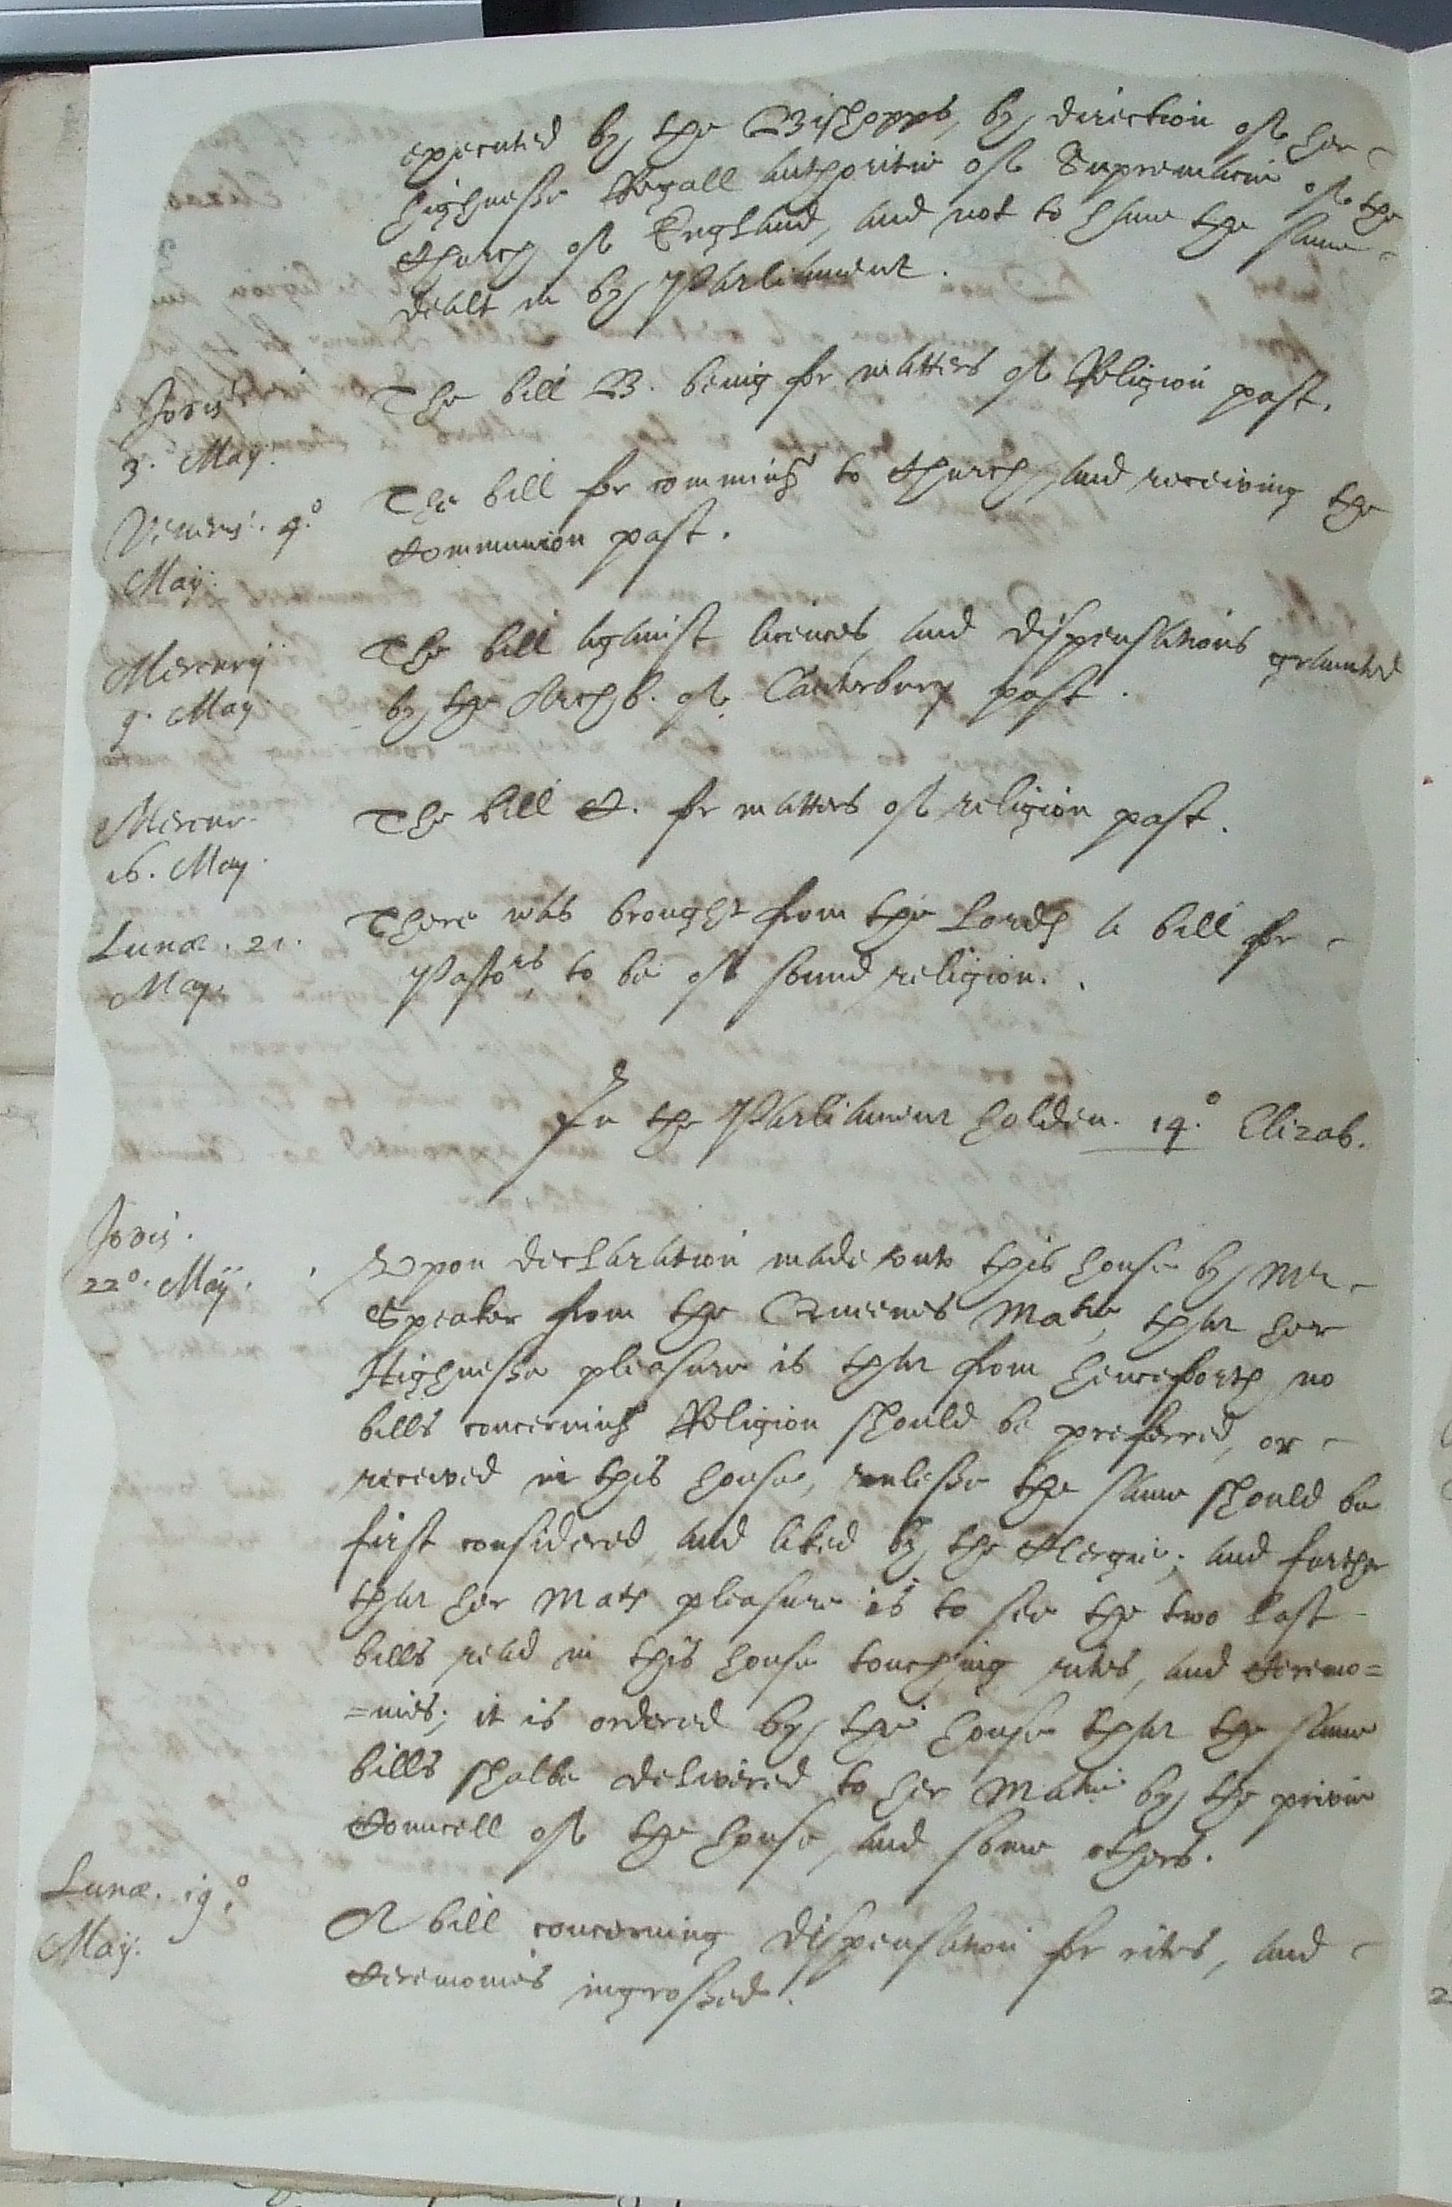 executed by the Bishopps, by direction of her
highnesse Regall authoritie of Supremacie of the
Church of England, and not to have the same
dealt in by Parliament.
Jovis
3. May.
The bill B. being for matters of Religion past.
Veneris. 4.º
May.
The bill for comming to Church, and receiving the
Communion past.
Mercurij
9. May
The bill against licences, and dispensations graunted
by the Archb. of Canterbury past.
Mercur.
16. May.
The bill C. for matters of religion past.
Lunæ. 21.
May.
There was brought from the Lords a bill for
Pastors to be of sound religion.
In the Parliament holden. 14.º Elizab.
Jovis.
22º. Maij.
Upon declaration made unto this house by Mr
Speaker from the Queenes Matie, that her
Highnesse pleasure is that from henceforth no
bills concerning Religion should be preferred, or
received in this house, unlesse the same should be
first considered and liked by the Clergie; and further
that her Mats pleasure is to see the two last
bills read in this house touching rites, and Ceremo=
=nies; it is ordered by the house that the same
bills shalbe delivered to her Matie by the privie
Councell of the house, and some others.
Lunæ. 19.º
Maij.
A bill concerning dispensation for rites, and
Ceremonies ingrossed.